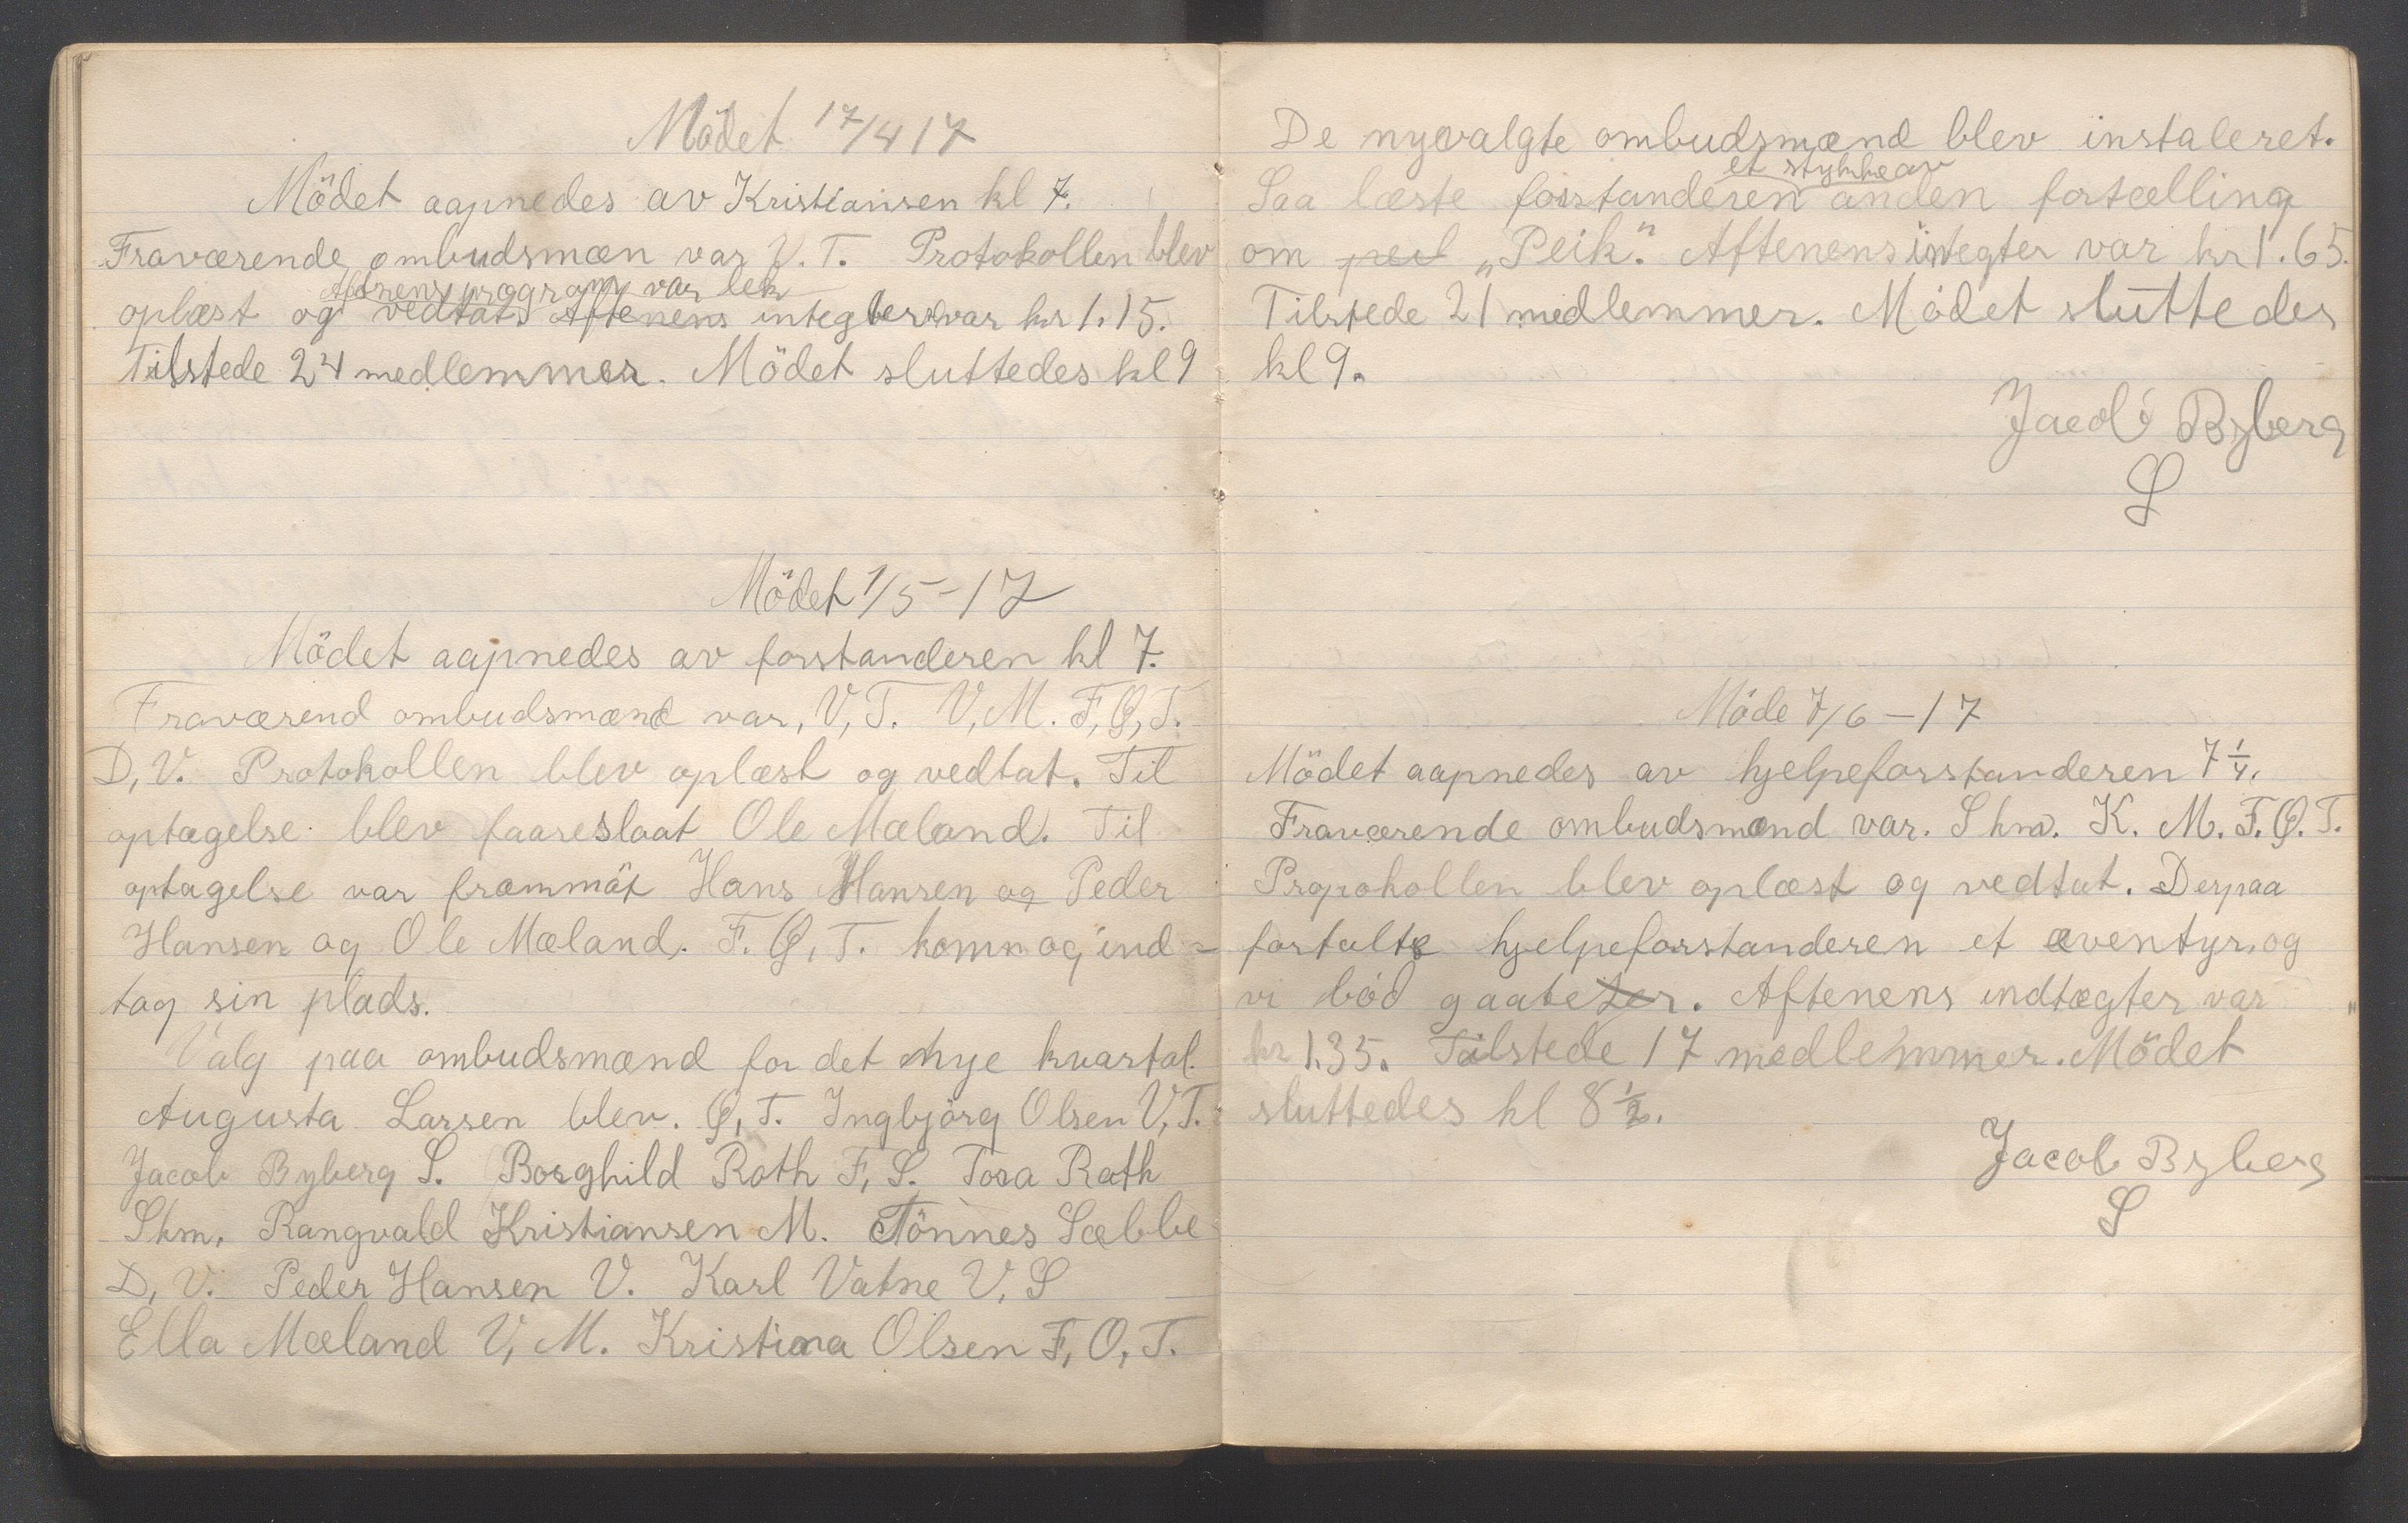 Mödet 17/4 17
Mödet aapnedes av Kristiansen kl 7.
Fraværende ombudsmæn var V. T. Protokollen blev
Aftenens program var lek
oplæst og vedtat. Aftenens integter var kr 1.15.
Tilstede 24 medlemmer. Mödet sluttedes kl 9
Mödet 1/5-17
Mödet aapnedes av forstanderen kl 7.
Fraværend ombudsmænd var, V, T. V, M. F, Ø, T.
D, V. Protokollen blev oplæst og vedtat. Til
optagelse blev faareslaat Ole Mæland. Til
optagelse var frammöt Hans Hansen og Peder
Hansen og Ole Mæland. F. Ø, T. komn og ind-
tag sin plads.
Valg paa ombudsmænd for det nye kvartal.
Augusta Larsen blev. Ø, T. Ingbjörg Olsen V, T.
Jacob Byberg S. Borghild Roth F, S. Tora Roth
Skm. Rangvald Kristiansen M. Tönnes Sæbbe
D, V. Peder Hansen V. Karl Vatne V, S
Ella Mæland V, M. Kristina Olsen F, O, T.
De nyvalgte ombudsmænd blev instaleret.
et stykke av
Saa læste forstanderen anden fortælling
om peil „Peik". Aftenens integter var kr 1.65.
Tilstede 21 medlemmer. Mödet sluttedes
kl 9.
Jacob Byberg
S
Möde 7/6-17
Mödet aapnedes av hjelpeforstanderen 7 1/4.
Fraværende ombudsmænd var. Skm. K. M. F. Ø. T.
Propokollen blev oplæst og vedtat. Derpaa
fortalte hjelpeforstanderen et æventyr, og
vi böd gaateter. Aftenens indtægter var
kr 1.35. Tilstede 17 medlemmer. Mödet
sluttedes kl 8 1/2.
Jacob Byberg
S